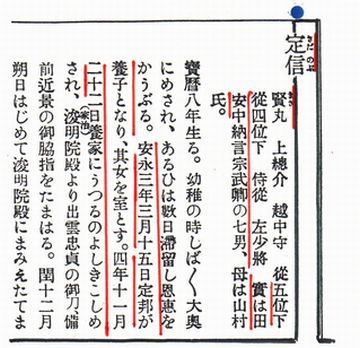 定信
さだのぶ
賢丸 上總介 越中守 從五位下
從四位下 侍從 左少將 實は田
安中納言宗武卿の七男、母は山村
氏。
寶曆八年生る。幼稚の時しば〱大奥
にめされ、あるひは數日滯留し恩惠を
かうぶる。安永三年三月十五日定邦が
養子となり、其女を室とす。四年十一月
二十二日養家にうつるのよしきこしめ
され、浚明院殿(家治)より出雲忠貞の御刀、備
前近景の御脇指をたまはる。閏十二月
朔日はじめて浚明院殿にまみえたてま